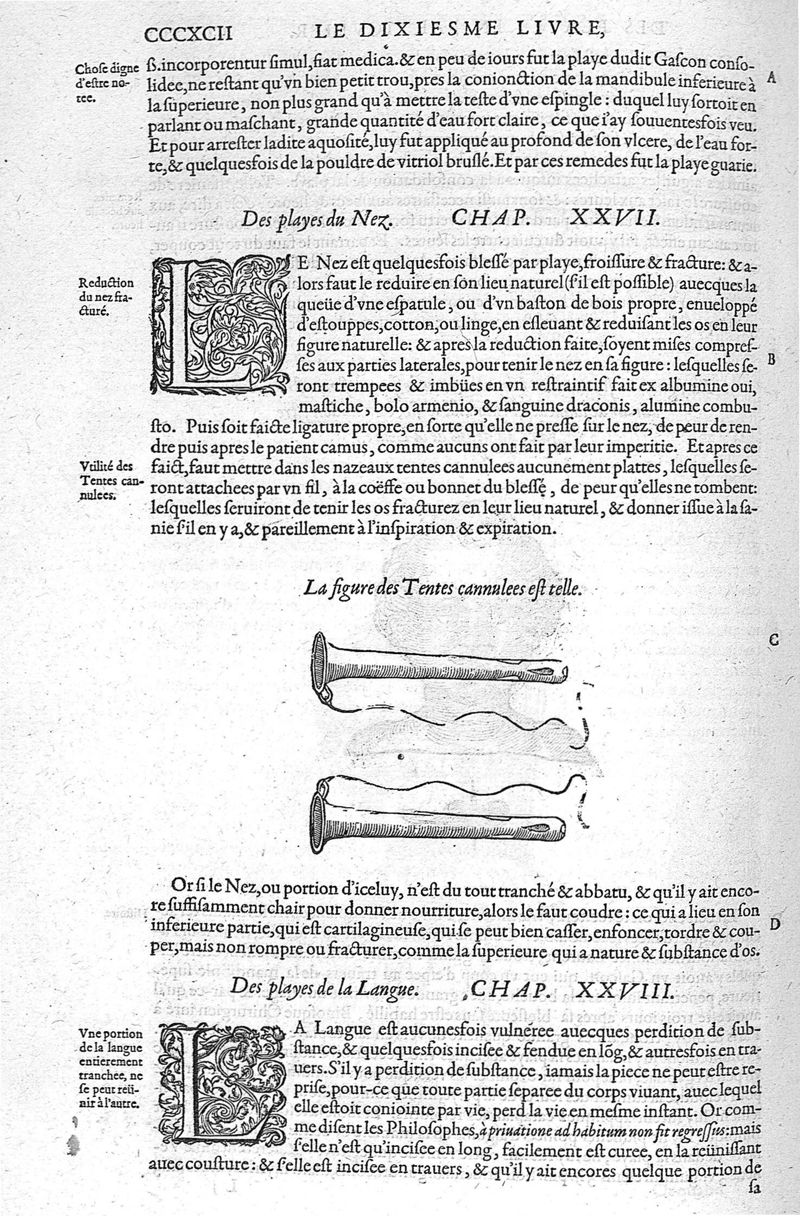 CCCXCII LE DIXIESME LIVRE,
Chose digne
d'estre no-
tee.
ß. incorporentur simul, fiat medica. & en peu de iours fut la playe dudit Gascon conso-
lidee, ne restant qu'vn bien petit trou, pres la conionction de la mandibule inferieure à
A
la superieure, non plus grand qu'à mettre la teste d'vne espingle : duquel luy sortoit en
parlant ou maschant, grande quantité d'eau fort claire, ce que i'ay souuentesfois veu.
Et pour arrester ladite aquosité, luy fut appliqué au profond de son vlcere, de l'eau for-
te, & quelquesfois de la pouldre de vitriol bruslé. Et par ces remedes fut la playe guarie.
Des playes du Nez. CHAP. XXVII.
Reduction
du nez fra-
cturé.
LE Nez est quelquesfois blessé par playe, froissure & fracture: & a-
lors faut le reduire en son lieu naturel (s'il est possible) auecques la
queüe d'vne espatule, ou d'vn baston de bois propre, enueloppé
d'estouppes, cotton, ou linge, en esleuant & reduisant les os en leur
figure naturelle: & apres la reduction faite, soyent mises compres-
ses aux parties laterales, pour tenir le nez en sa figure : lesquelles se-
B
ront trempees & imbües en vn restraintif fait ex albumine oui,
mastiche, bolo armenio, & sanguine draconis, alumine combu-
sto. Puis soit faicte ligature propre, en sorte qu'elle ne presse sur le nez, de peur de ren-
dre puis apres le patient camus, comme aucuns ont fait par leur imperitie. Et apres ce
Vtilité des
Tentes can-
nulees.
faict, faut mettre dans les nazeaux tentes cannulees aucunement plattes, lesquelles se-
ront attachees par vn fil, à la coëffe ou bonnet du blessé, de peur qu'elles ne tombent:
lesquelles seruiront de tenir les os fracturez en leur lieu naturel, & donner issue à la sa-
nie s'il en y a, & pareillement à l'inspiration & expiration.
La figure des Tentes cannulees est telle.
C
Or si le Nez, ou portion d'iceluy, n'est du tout tranché & abbatu, & qu'il y ait enco-
re suffisamment chair pour donner nourriture, alors le faut coudre : ce qui a lieu en son
inferieure partie, qui est cartilagineuse, qui se peut bien casser, enfoncer, tordre & cou-
D
per, mais non rompre ou fracturer, comme la superieure qui a nature & substance d'os.
Des playes de la Langue. CHAP. XXVIII.
Vne portion
de la langue
entierement
tranchee, ne
se peut reü-
nir à l'autre.
LA Langue est aucunesfois vulneree auecques perdition de sub-
stance, & quelquesfois incisee & fendue en lõg, & autresfois en tra-
uers. S'il y a perdition de substance, iamais la piece ne peut estre re-
prise, pour-ce que toute partie separee du corps viuant, auec lequel
elle estoit coniointe par vie, perd la vie en mesme instant. Or com-
me disent les Philosophes, à priuatione ad habitum non fit regressus: mais
s'elle n'est qu'incisee en long, facilement est curee, en la reünissant
auec cousture : & s'elle est incisee en trauers, & qu'il y ait encores quelque portion de
sa